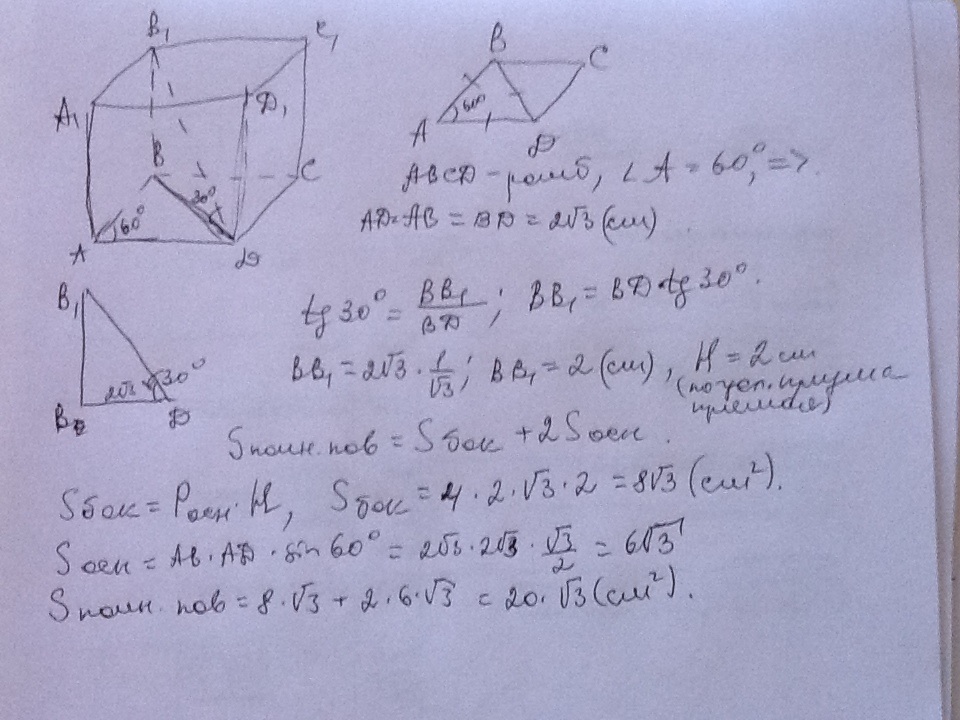 B₁ C₁
A₁ D₁
B C
30°
60°
A D
B C
60°
A D
ABCD - ромб, ∠A = 60°, =>
AD=AB = BD = 2√3 (см)
B₁
2√3 30°
B D
tg 30° = BB₁/BD ; BB₁ = BD tg 30°.
BB₁ = 2√3 · 1/√3 ; BB₁ = 2 (см), H = 2 см
(по усл. призма
прямая)
Sполн. пов = Sбок + 2Sосн.
Sбок = Pосн · H, Sбок = 4 · 2 · √3 · 2 = 8√3 (см²).
Sосн = AB · AD · sin 60° = 2√3 · 2√3 · √3/2 = 6√3
Sполн. пов = 8 · √3 + 2 · 6 · √3 = 20 · √3 (см²).